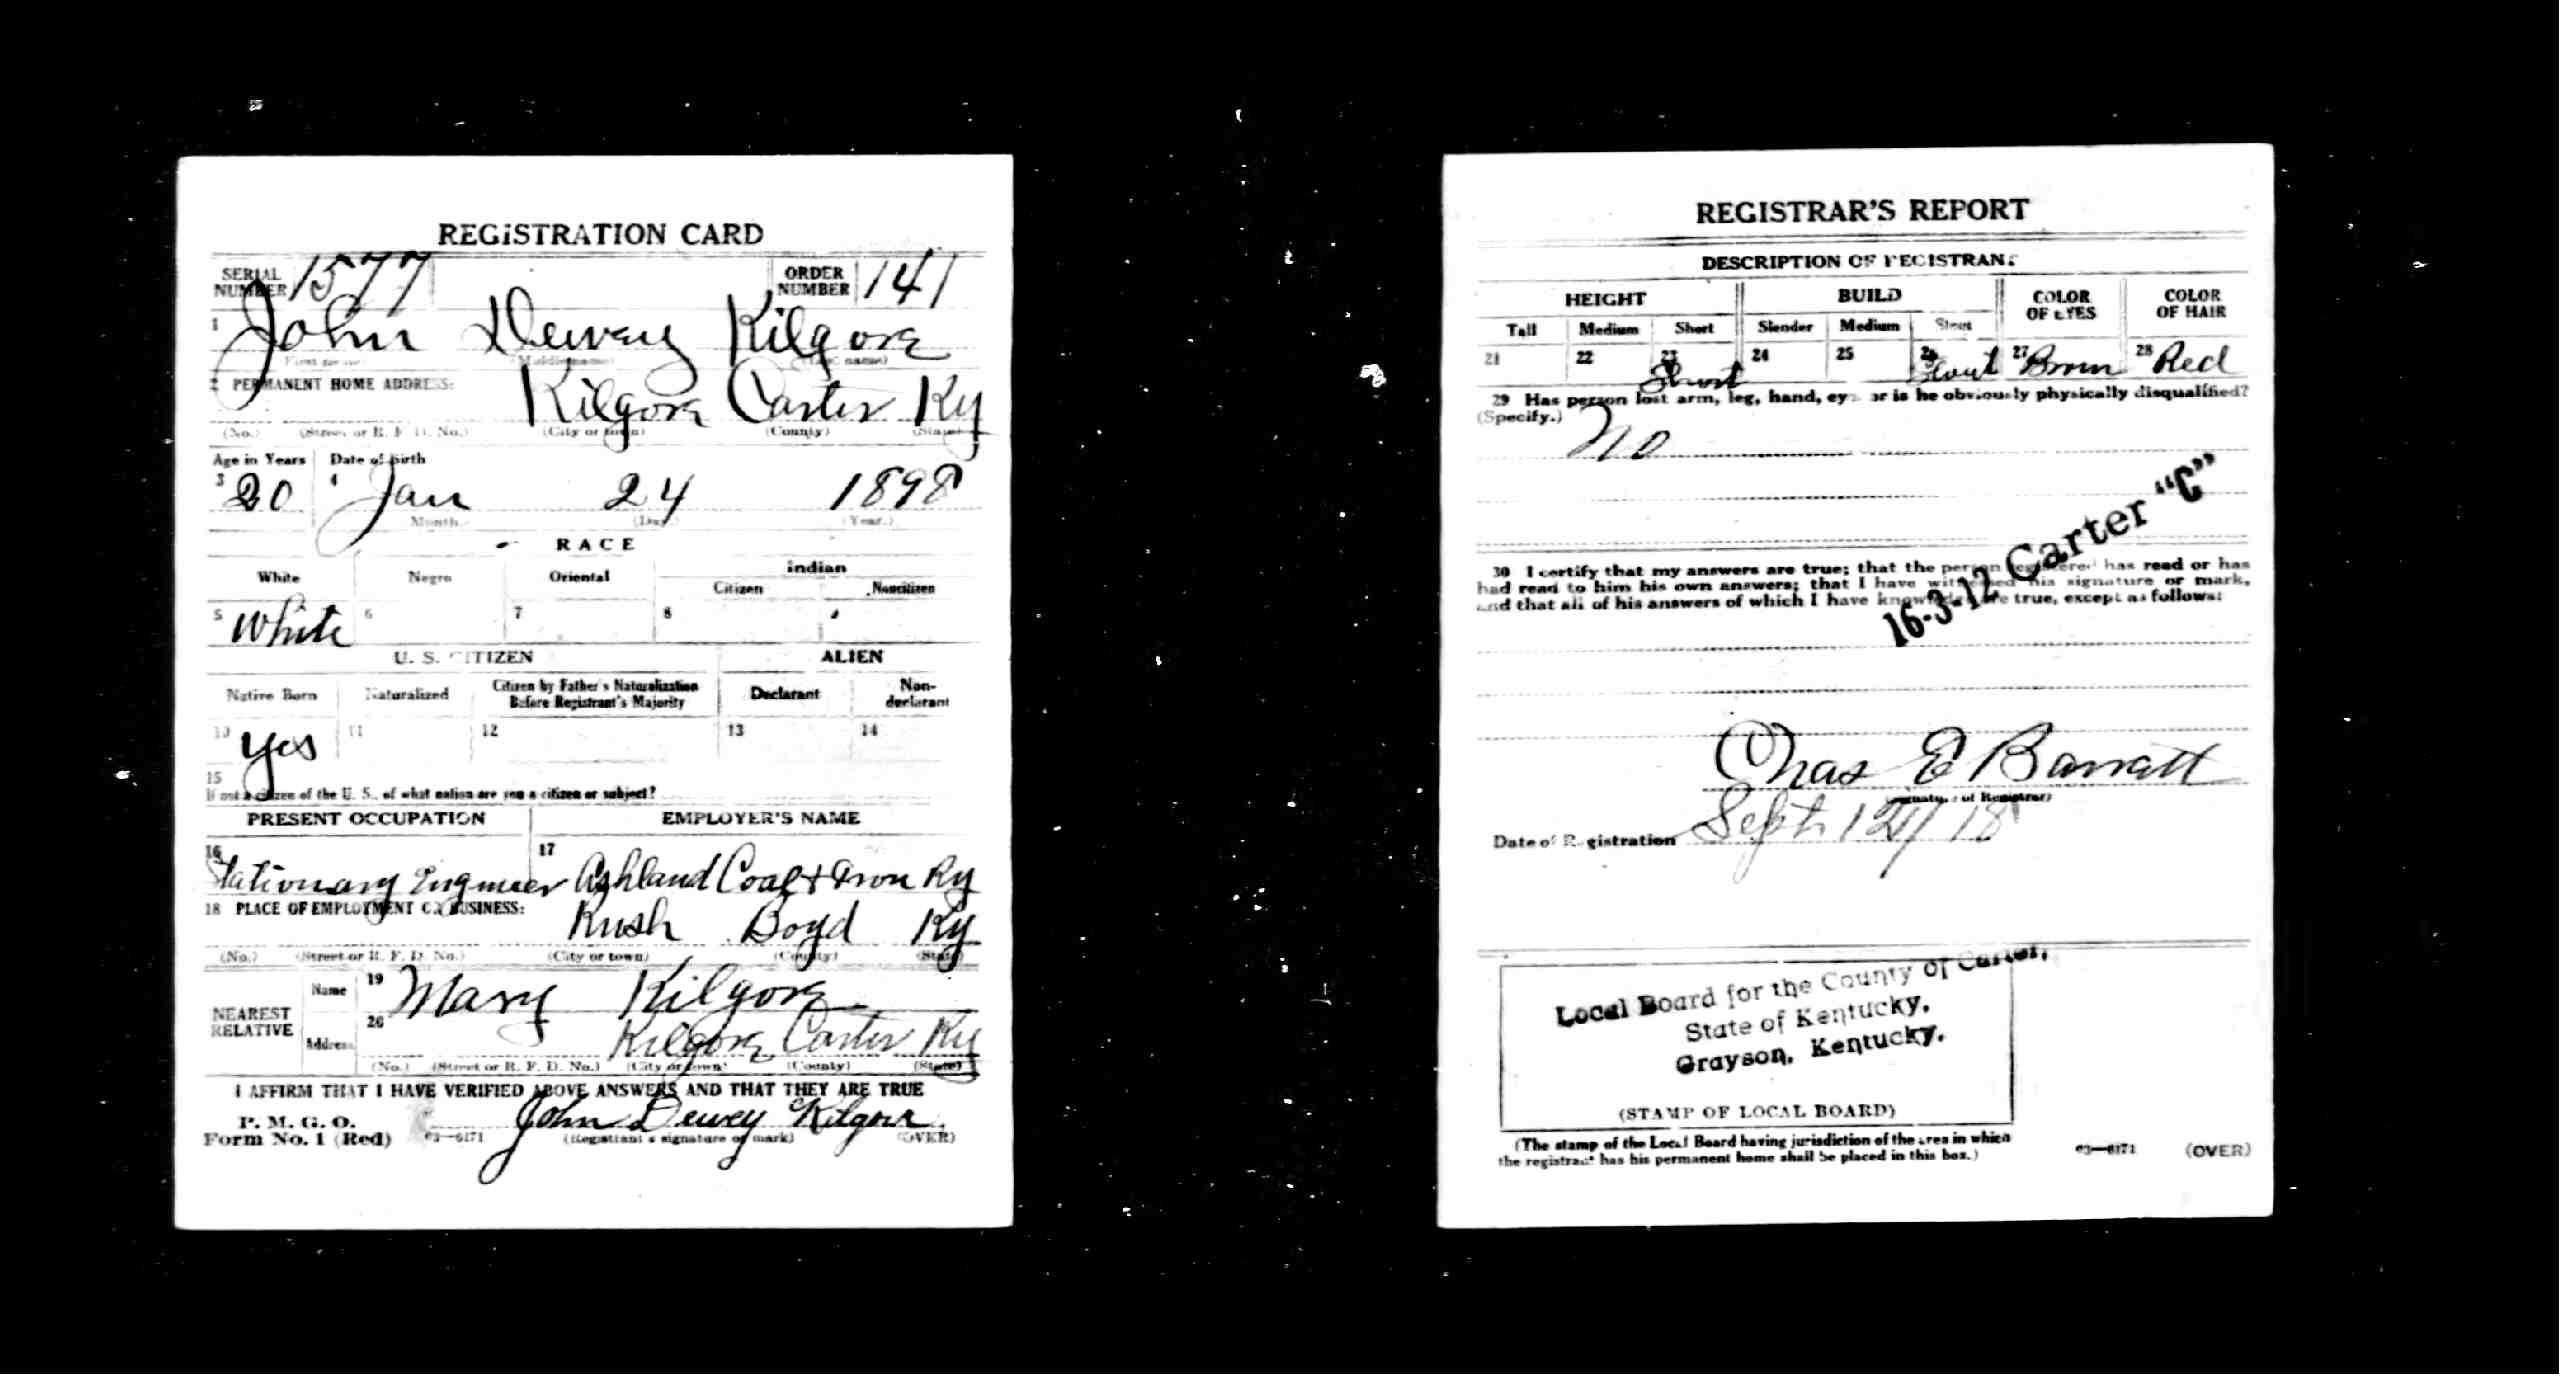 REGISTRATION CARD
SERIAL NUMBER 1577 ORDER NUMBER 141
1 John Dewey Kilgore
First name Middle name Last name)
2 PERMANENT HOME ADDRESS:
Kilgore Carter Ky
(No.) (Street or R. F. D. No.) (City or town) (County) (State)
Age in Years Date of Birth
3 20 4 Jan 24 1898
Month. (Day.) (Year.)
RACE
White Negro Oriental Indian
Citizen Noncitizen
5 White 6 7 8 9
U. S. CITIZEN ALIEN
Native Born Naturalized Citizen by Father's Naturalization Before Registrant's Majority Declarant Non-declarant
10 yes 11 12 13 14
15
If not a citizen of the U. S., of what nation are you a citizen or subject?
PRESENT OCCUPATION EMPLOYER'S NAME
16 Stationary Engineer 17 Ashland Coal & Iron Ry
18 PLACE OF EMPLOYMENT OR BUSINESS:
Rush Boyd Ky
(No.) (Street or R. F. D. No.) (City or town) (County) (State)
NEAREST RELATIVE
Name 19 Mary Kilgore
Address 20 Kilgore Carter Ky
(No.) (Street or R. F. D. No.) (City or town) (County) (State)
I AFFIRM THAT I HAVE VERIFIED ABOVE ANSWERS AND THAT THEY ARE TRUE
P. M. G. O.
Form No. 1 (Red) 03—6171 John Dewey Kilgore
(Registrant's signature or mark) (OVER)
REGISTRAR'S REPORT
DESCRIPTION OF REGISTRANT
HEIGHT BUILD COLOR OF EYES COLOR OF HAIR
Tall Medium Short Slender Medium Stout
21 22 23 Short 24 25 26 Stout 27 Brown 28 Red
29 Has person lost arm, leg, hand, eye, or is he obviously physically disqualified?
(Specify.) No
16-3-12 Carter "C"
30 I certify that my answers are true; that the person registered has read or has
had read to him his own answers; that I have witnessed his signature or mark,
and that all of his answers of which I have knowledge are true, except as follows:
Chas E Barratt
(Signature of Registrar)
Date of Registration Sept 12/18
Local Board for the County of Carter,
State of Kentucky,
Grayson, Kentucky.
(STAMP OF LOCAL BOARD)
(The stamp of the Local Board having jurisdiction of the area in which
the registrant has his permanent home shall be placed in this box.)
03—6171 (OVER)